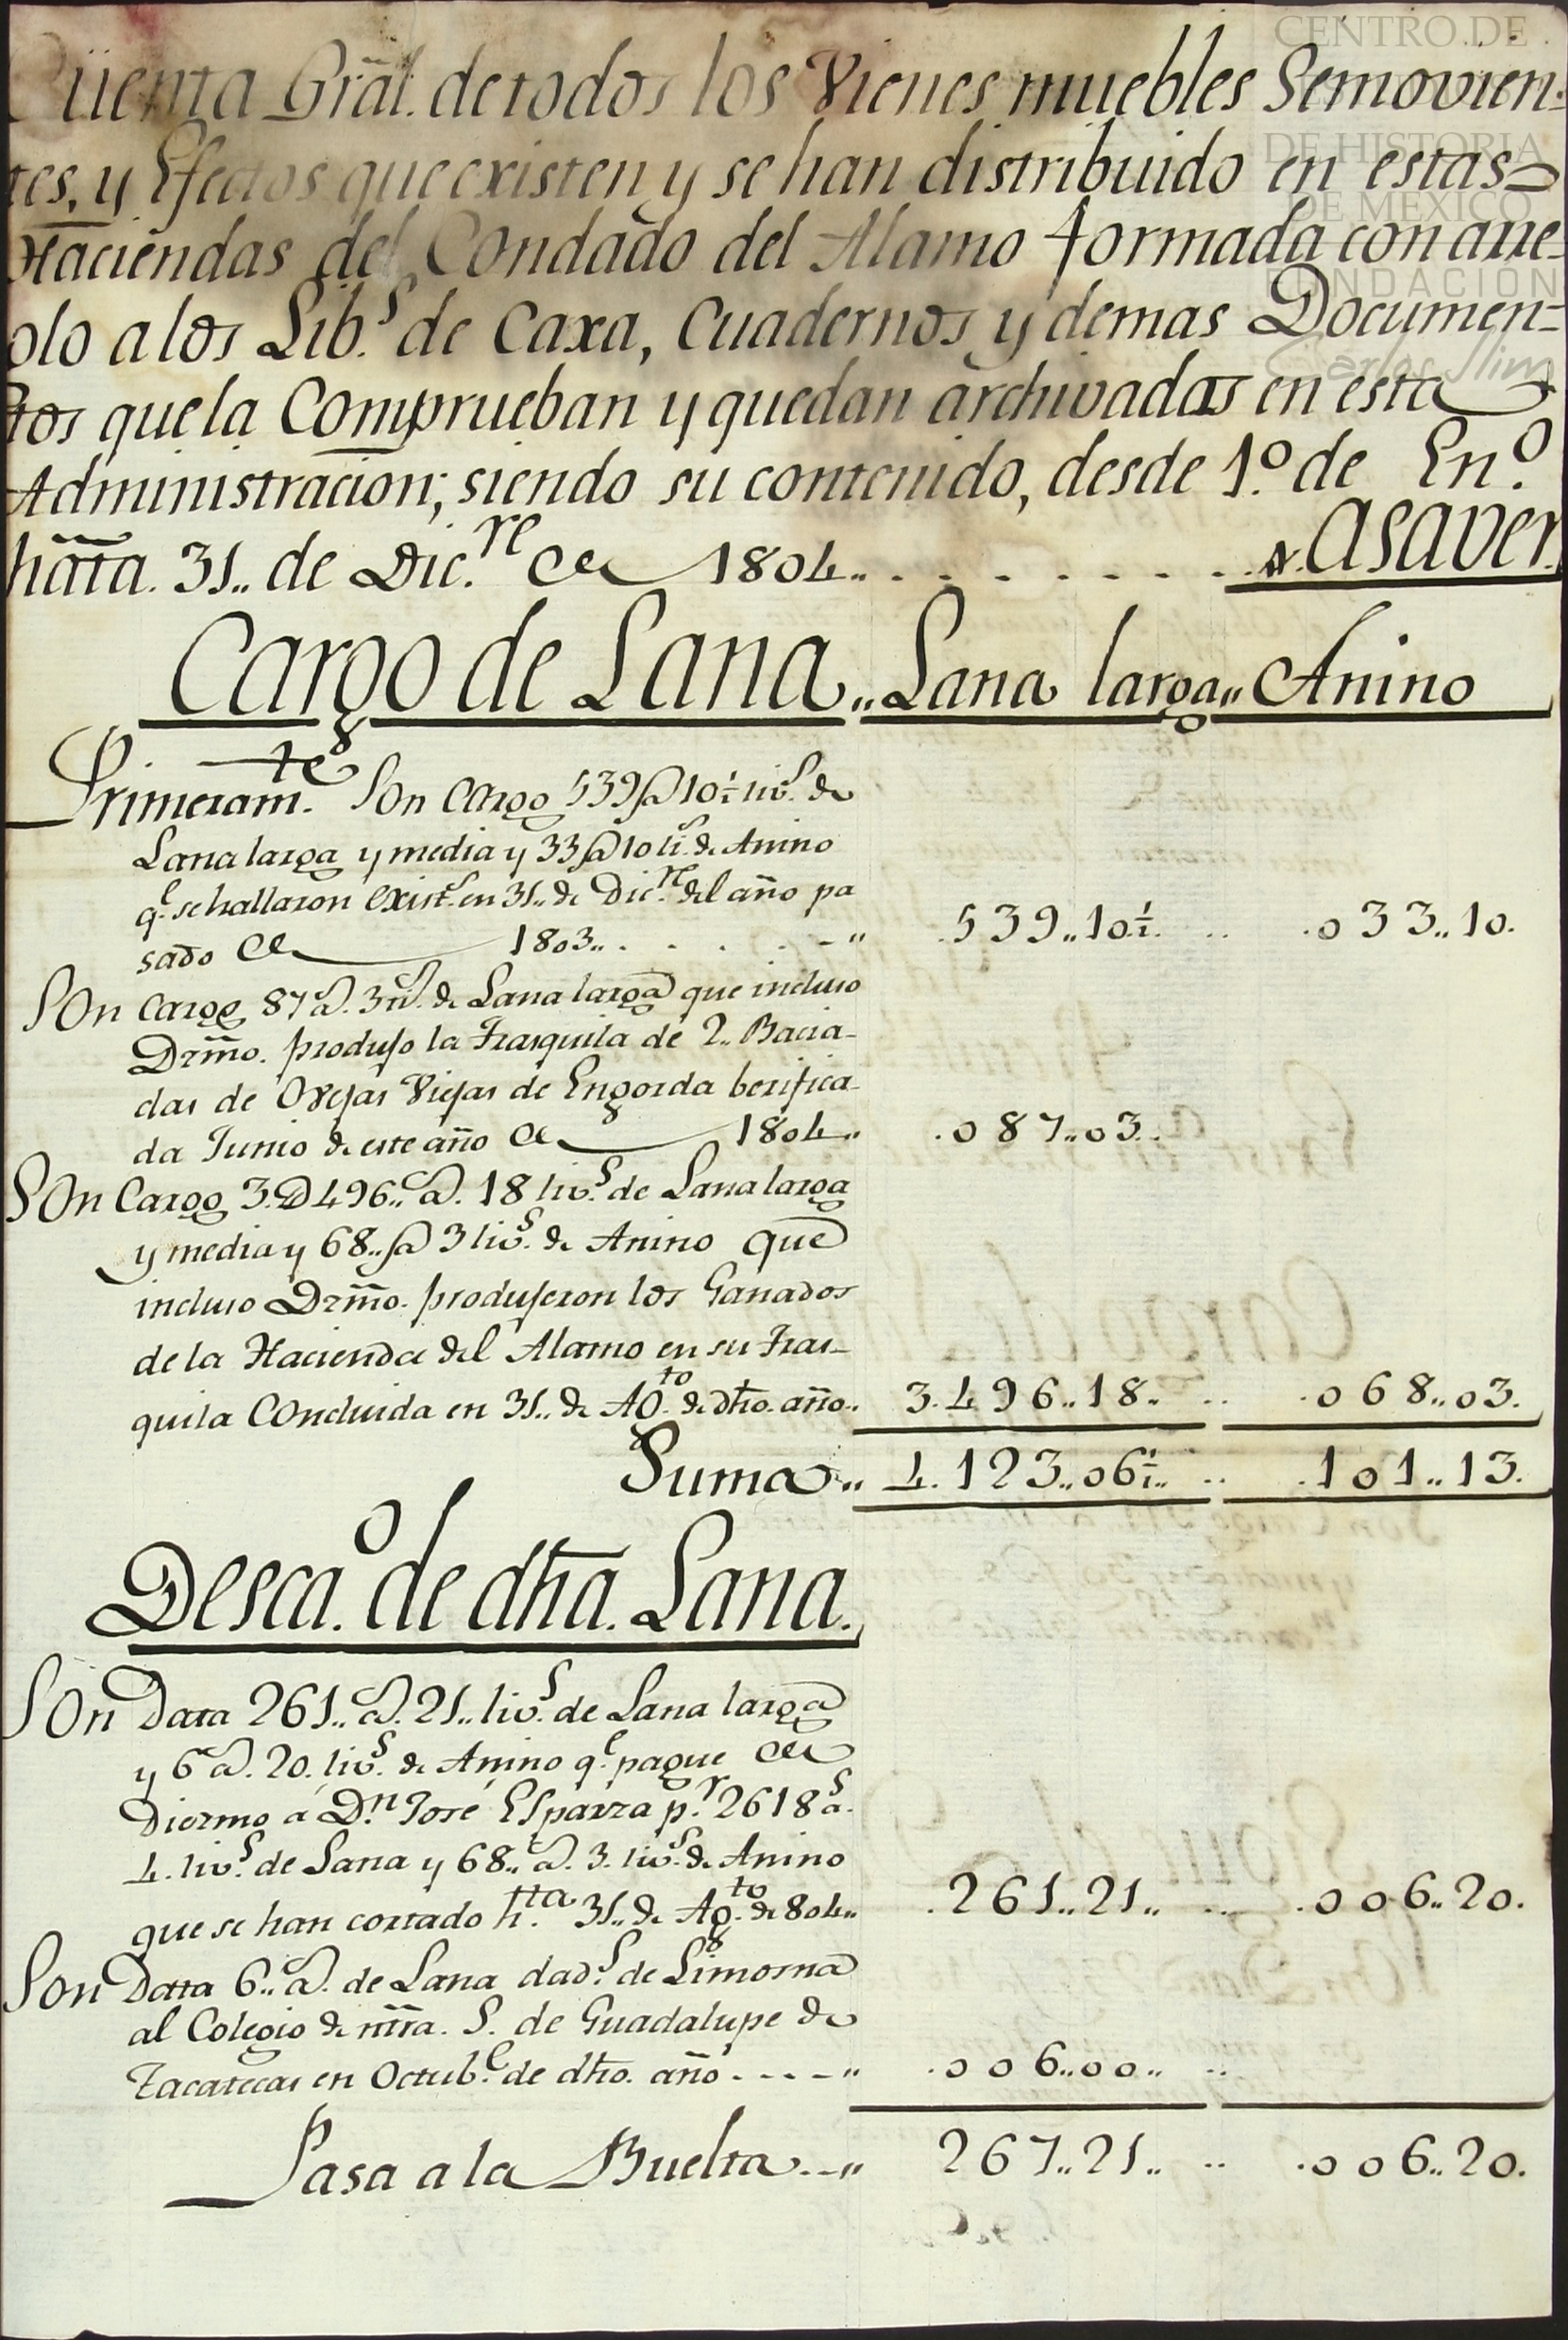 Cüenta Gr̃al. de todos los Vienes muebles Semovien=
tes, y Efectos que existen y se han distribuido en estas
Haciendas del Condado del Alamo formada con arre=
olo a los Lib.s de Caxa, Cuadernos y demas Documen=
tos que la Comprueban y quedan archivadas en esta
Administracion; siendo su contenido, desde 1.º de En.º
hãta. 31.. de Dic.re de 1804.. . . . . . . . . A saver.
Cargo de Lana.. Lana larga.. Anino
Primeram.te Son Cargo 539 @ 10½ liv.s de
Lana larga y media y 33 @ 10 li.s de Anino
q.e se hallaron exist.s en 31.. de Dic.re del año pa
sado de 1803.. . . . . . - " .539..10½. .. .033..10.
Son Cargo 87 @. 3 li.s de Lana larga que incluso
Dzm̃o. produjo la Trasquila de 2.. Bacia-
das de Ovejas Viejas de Engorda berifica-
da Junio de este año de 1804.. .087..03..
Son Cargo 3.D496.. @. 18 liv.s de Lana larga
y media y 68.. @ 3 liv.s de Anino que
incluso Dzm̃o. produjeron los Ganados
de la Hacienda del Alamo en su Tras-
quila Concluida en 31.. de Ag.to de dho. año.. 3.496..18.. .. .068..03.
Suma.. 4.123..06½.. .. .101..13.
Desca.º de dha. Lana.
Son Data 261.. @. 21.. liv.s de Lana larga
y 6 @. 20. liv.s de Anino q.e pague de
Diezmo a D.n José Esparza p.r 2618 @.s
4. liv.s de Lana y 68.. @. 3. liv.s de Anino
que se han cortado h.tta 31.. de Ag.to de 804.. .261..21.. .. .006..20.
Son Datta 6.. @. de Lana dad.s de Limosna
al Colegio de ntr̃a. S. de Guadalupe de
Zacatecas en Octub.e de dho. año - - - - " .006..00.. ..
Pasa a la Buelta..-" 267..21.. .. .006..20.
CENTRO DE
DE HISTORIA
DE MEXICO
FUNDACIÓN
Carlos Slim